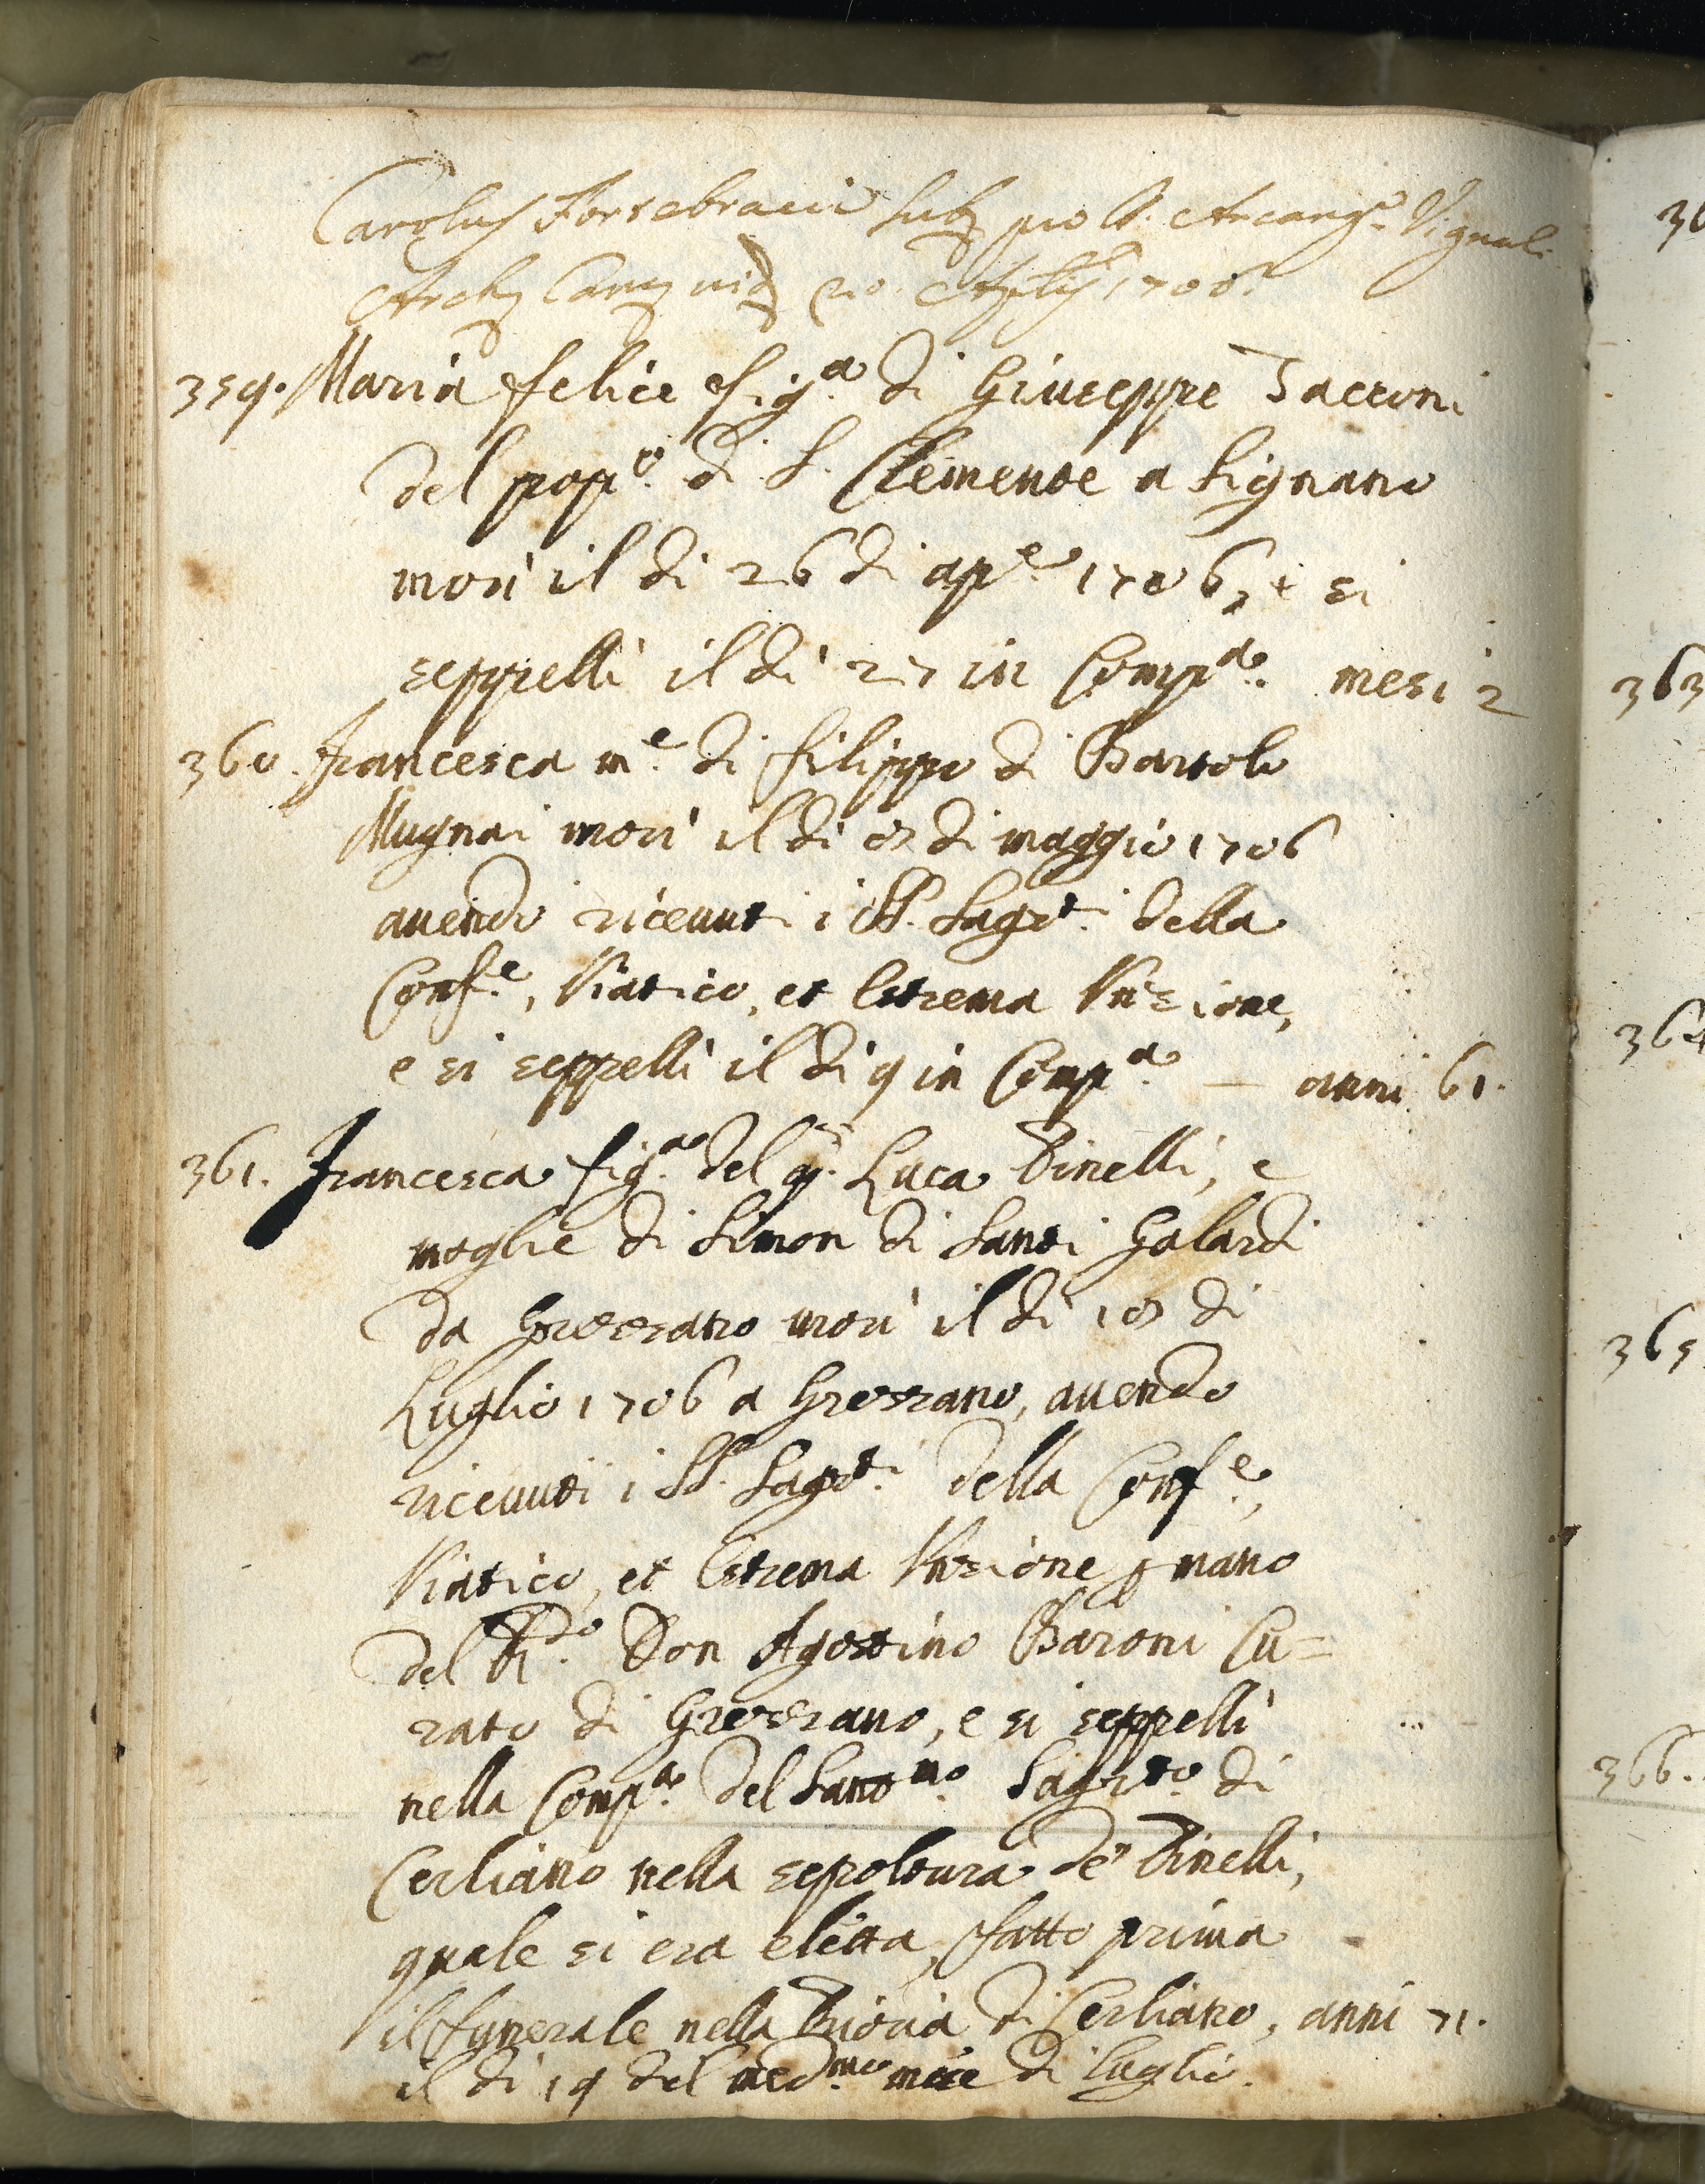 Carolus Fortebracii pro Ill. Arcang. Vignal.
Arch. Canc. vid. 20. 1706
359. Maria felice fig.a di Giuseppe Tacconi
del pop.o di S. Clemente a Signano
morì il dì 26 di ap.e 1706, e si
seppellì il dì 27 in Comp.a mesi 2
360. Francesca m.e di filippo di Bartolo
Mugnai morì il dì 8 di maggio 1706
auendo riceuuti i SS. Sagr.ti della
Conf.e, Viatico, et Estrema Vnzione,
e si seppellì il dì 9 in Comp.a — anni 61.
361. Francesca fig.a del q. Luca Pinelli, e
moglie di Simon di Santi Galardi
da Grezzano morì il dì 18 di
Luglio 1706 a Grezzano, auendo
riceuuti i SS. Sagr.ti della Conf.e,
Viatico, et Estrema Vnzione p mano
del R.do Don Agostino Baroni Cu=
rato di Grezzano, e si seppellì
nella Comp.a del Sant.mo Sagr.to di
Cerliano nella sepoltura de' Pinelli,
quale si era eletta, fatto prima
il funerale nella Prioria di Cerliano, anni 71.
il dì 19 del med.mo mese di luglio.
36
363
364
365
366.